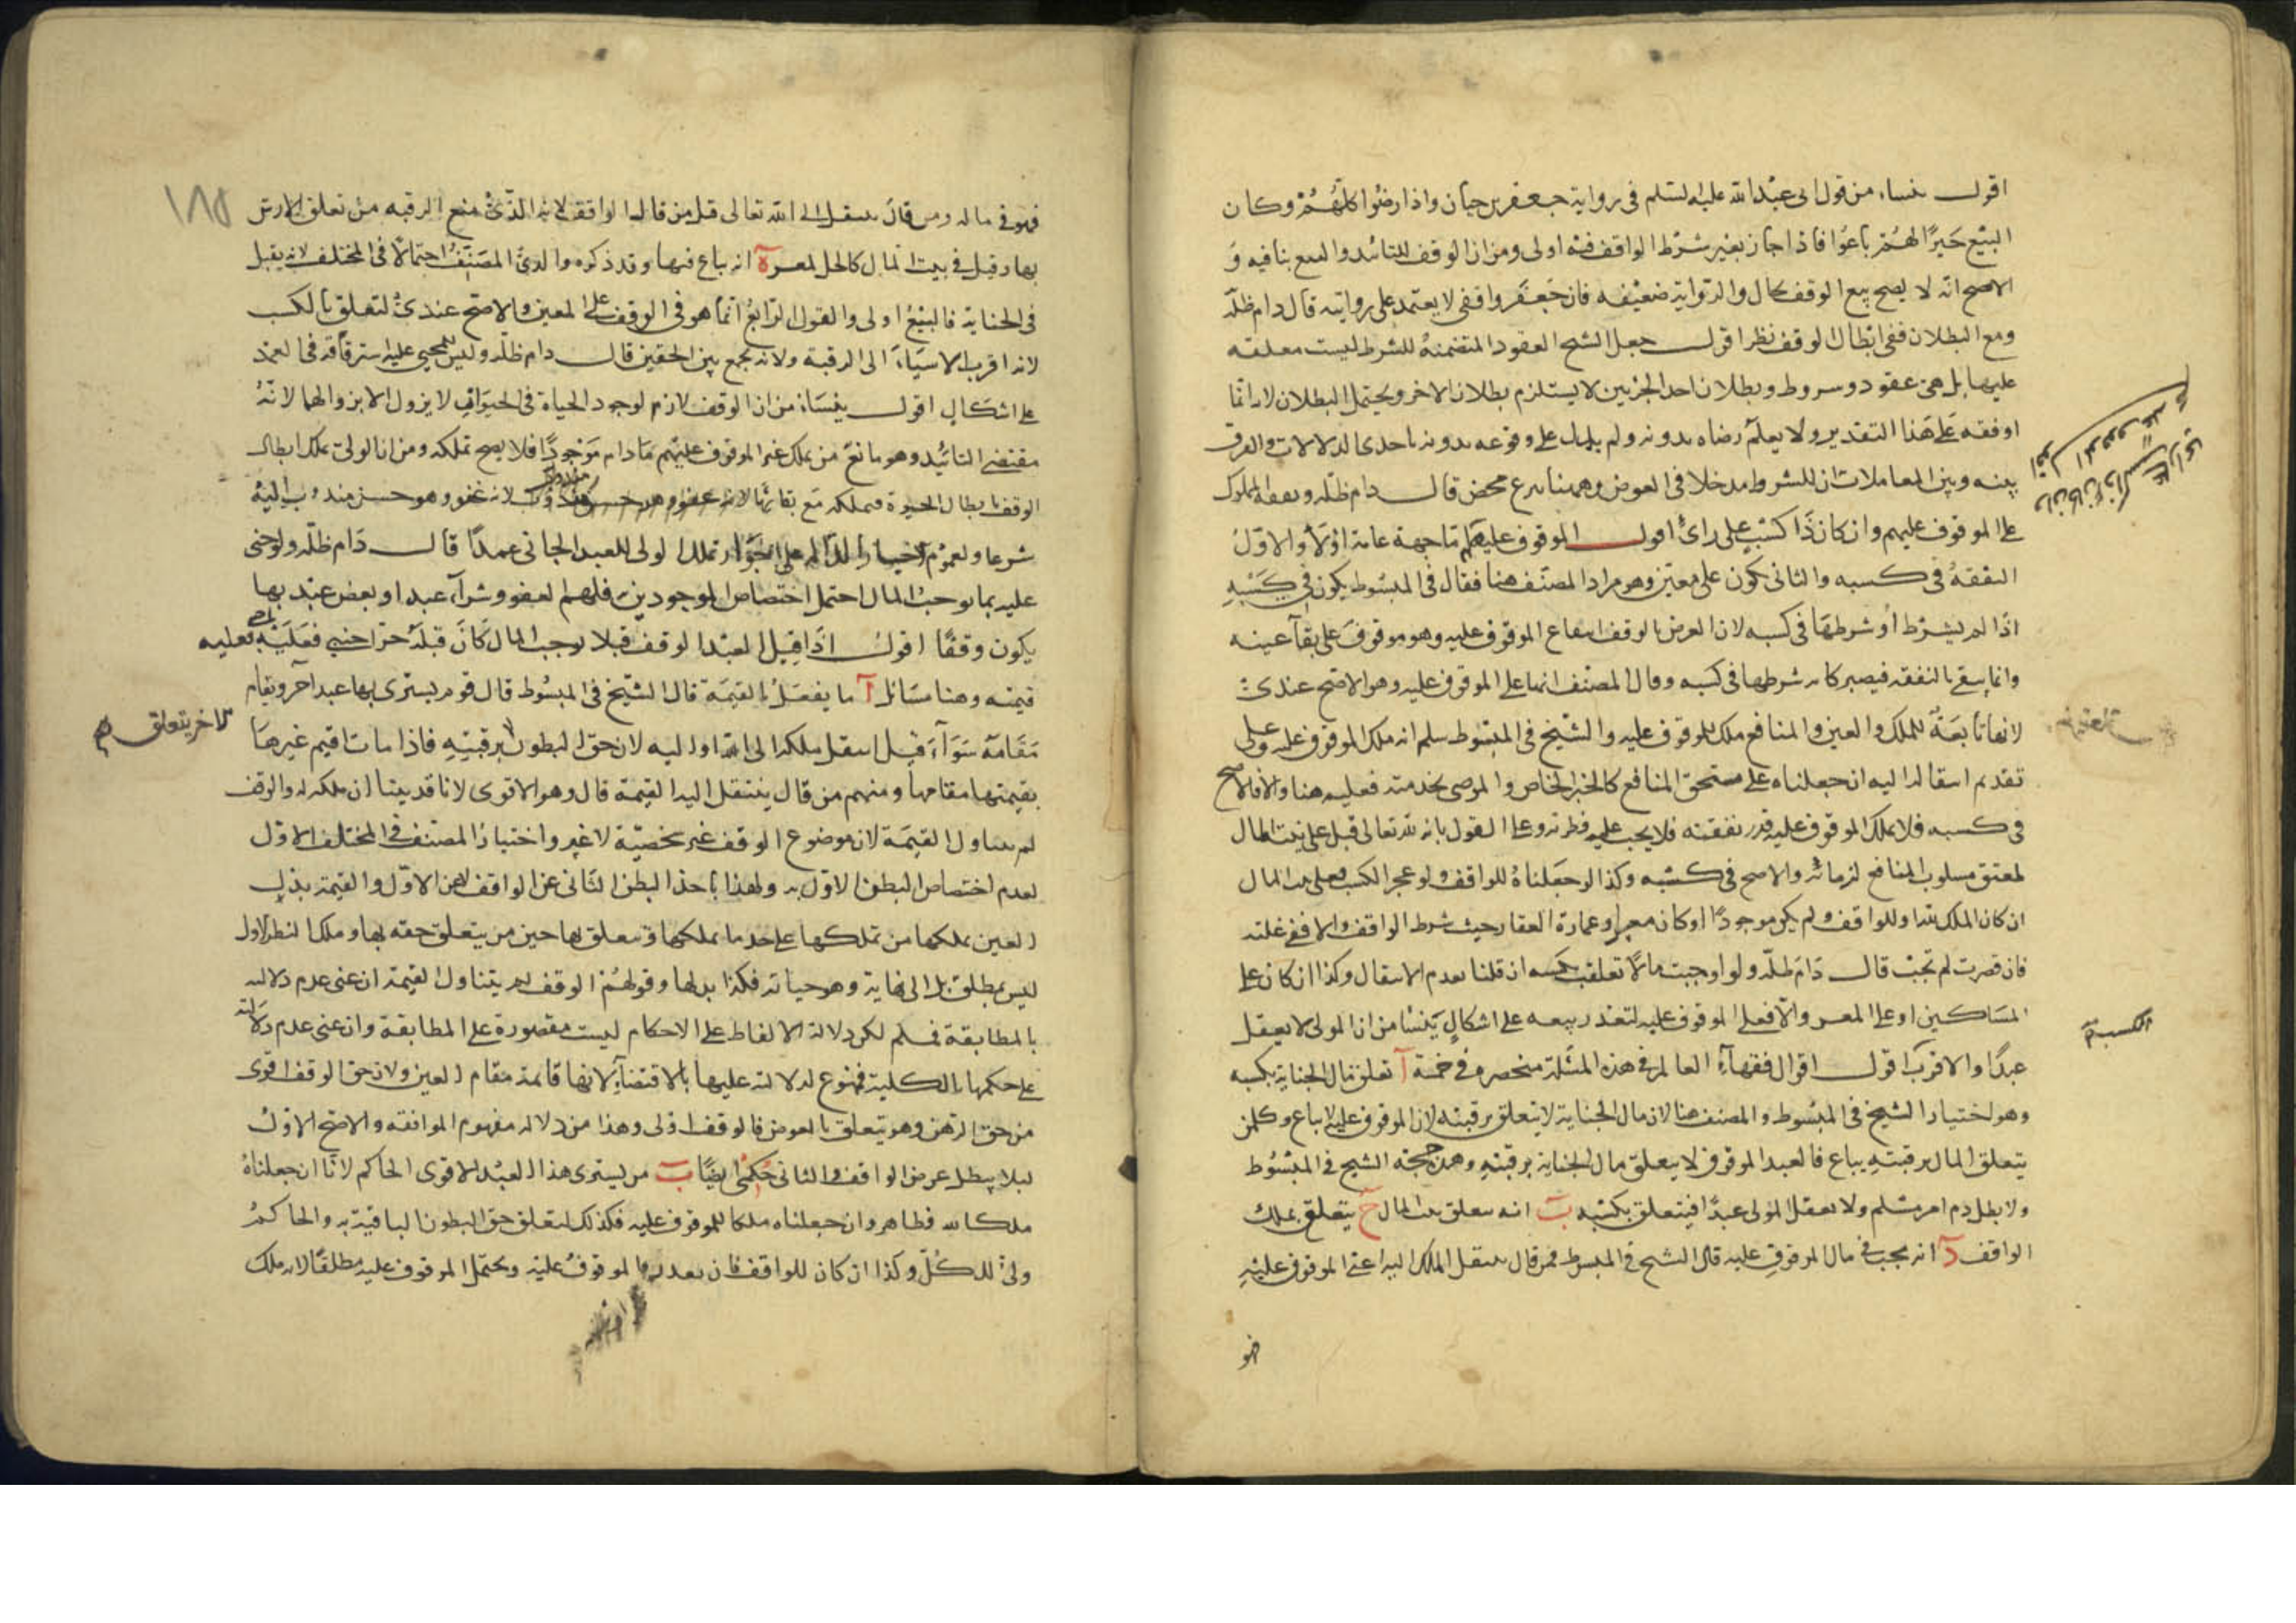 اقول ينساء من قول ابى عبد الله عليه السلم فى رواية جعفر بن حيان واذا رضوا كلهم وكان
البيع خيرًا لهم باعوا فاذا جاز بغير شرط الواقف فبه اولى ومن ان الوقف للتائيد والبيع ينافيه و
الاصح انه لا يصح بيع الوقف بحال والرواية ضعيفه فان جعفر واقفى لا يعتمد على روايته قال دام ظله
ومع البطلان ففى ابطال الوقف نظر اقول جعل الشيخ العقود المتضمنة للشرط ليست معلقه
عليها بل هى عقود وشروط وبطلان احد الجزئين لا يستلزم بطلان الاخر ويحتمل البطلان لانه انما
اوقفه على هذا التقدير ولا يعلم رضاه بدونه ولم يدل على وقوعه بدونه باحدى الدلالات والفرق
بينه وبين المعاملات ان للشروط مدخلا فى العوض وههنا تبرع محض قال دام ظله ونفقة المملوك
على الموقوف عليهم وان كان ذا كسب على راى اقول الموقوف عليهم اما جهة عامة اولا والاول
النفقة فى كسبه والثانى يكون على معين وهو مراد المصنف هنا فقال فى المبسوط يكون فى كسبه
اذا لم يشرط او شرطها فى كسبه لان الغرض بالوقف انتفاع الموقوف عليه وهو موقوف على بقآء عينه
وانما يبقى بالنفقة فيصير كانه شرطها فى كسبه وقال المصنف انها على الموقوف عليه وهو الاصح عندى
لانها تابعة للملك والعين والمنافع ملك للموقوف عليه والشيخ فى المبسوط سلم انه ملك الموقوف عليه وعلى
تقديم انتقالها اليه ان جعلناه على مستحق المنافع كالاجير الخاص والموصى بخدمته فعليه هنا والا فالاصح
فى كسبه فلا يملك الموقوف عليه قدر نفقته فلا يجب عليه فطرته وعلى القول بانه لله تعالى قيل على بيت المال
لمعتق مسلوب المنافع لزمانة والاصح فى كسبه وكذا لو جعلناه للواقف ولو عجز الكسب فعلى بيت المال
ان كان الملك لله او للواقف ولم يكن موجودًا او كان معسرا وعمارة العقار حيث شرط الواقف والا ففى غلته
فان قصرت لم تجب قال دام ظله ولو اوجبت مالا تعلقت بكسبه ان قلنا بعدم الانتقال وكذا ان كان على
المساكين او على المعين والا فعلى الموقوف عليه لتعذر بيعه على اشكال ينشا من ان المولى لا يعقل
عبدًا والاقرب اقول اقوال فقهآء العالم فى هذه المسئلة منحصرة فى خمسة آ تعلق مال الجناية بكسبه
وهو اختيار الشيخ فى المبسوط والمصنف هنا لان مال الجناية لا يتعلق برقبته لان الموقوف عليه لا يباع وكل من
يتعلق المال برقبته يباع فالعبد الموقوف لا يتعلق مال الجناية برقبته وهذه حجة الشيخ فى المبسوط
ولا يطل دم امرء مسلم ولا يعقل المولى عبدًا فيتعلق بكسبه ب انه يتعلق ببيت المال ج يتعلق بملك
الواقف د انه يجب فى مال الموقوف عليه قال الشيخ فى المبسوط فمن قال ينتقل الملك اليه اعنى الموقوف عليه
فهو
الكسب
فهو فى ماله ومن قال ينتقل الى الله تعالى قيل من قال الواقف لانه الذى منع الرقبه من تعلق الارش
بها وقيل فى بيت المال كالحر المعسر ه انه يباع فيها وقد ذكره والدى المصنف احتمالا فى المختلف لانه يقبل
فى الجناية فالبيع اولى والقول الرابع انما هو فى الوقف على المعين والاصح عندى التعلق بالكسب
لانه اقرب الاشياء الى الرقبة ولانه يجمع بين الحقين قال دام ظله وليس للمجنى عليه استرقاقه فى العمد
على اشكال اقول ينشاء من ان الوقف لازم لوجود الحياة فى الحيوان لا يزول الا بزوالها لانه
مقتضى التائيد وهو مانع من تملك غير الموقوف عليهم ما دام موجودًا فلا يصح تملكه ومن ان الولى تملك ابطال
الوقف بابطال الحيوة فتملكه مع بقائها لانه عفو وهو حسن مندوب اليه
شرعا ولعموم الاخبار الدالة على جواز تملك الولى للعبد الجانى عمدًا قال دام ظله ولو جنى
عليه بما يوجب المال احتمل اختصاص الموجودين فلهم العفو وشرآء عبد او بعض عبد بها
يكون وقفًا اقول اذا قتل العبد الوقف قتلا يوجب المال كان قتله حر اجنبى فعليه
قيمته وهنا مسائل آ ما يفعل بالقيمة قال الشيخ فى المبسوط قال قوم يشترى بها عبد آخر ويقام
مقامه سوآء قيل انتقل ملكه الى الله او اليه لان حق البطون برقبته فاذا مات اقيم غيرها
الاخر يتعلق صح
بقيمتها مقامها ومنهم من قال ينتقل اليه القيمة قال وهو الاقوى لانا قد بينا ان ملكه له والوقف
لم يتناول القيمة لان موضوع الوقف عين شخصية لا غير واختيار المصنف فى المختلف الاول
لعدم اختصاص البطن الاول به ولهذا ياخذ البطن الثانى عن الواقف لا عن الاول والقيمة بدل
العين يملكها من تملكها على حد ما يملكها ويتعلق بها حق من يتعلق حقه بها وملك البطن الاول
ليس بمطلق بل الى نهاية وهو حياته فكذا بدلها وقولهم الوقف لم يتناول القيمة ان عنى عدم دلالته
بالمطابقة فمسلم لكن دلالة الالفاظ على الاحكام ليست مقصورة على المطابقة وان عنى عدم دلالته
على حكمها بالكلية فممنوع لدلالته عليها بالاقتضآء لانها قائمة مقام العين ولان حق الوقف اقوى
من حق الرهن وهو يتعلق بالعوض فالوقف اولى وهذا من دلالة مفهوم الموافقه والاصح الاول
ليلا يبطل غرض الواقف والثانى حكمى ايضًا ب من يشترى هذا العبد الاقوى الحاكم لانا ان جعلناه
ملكا لله فظاهر وان جعلناه ملكا للموقوف عليه فكذلك لتعلق حق البطون الباقية به والحاكم
ولى للكل وكذا ان كان للواقف فان تعذر فالموقوف عليه ويحتمل الموقوف عليه مطلقًا لانه ملك
١٨٥